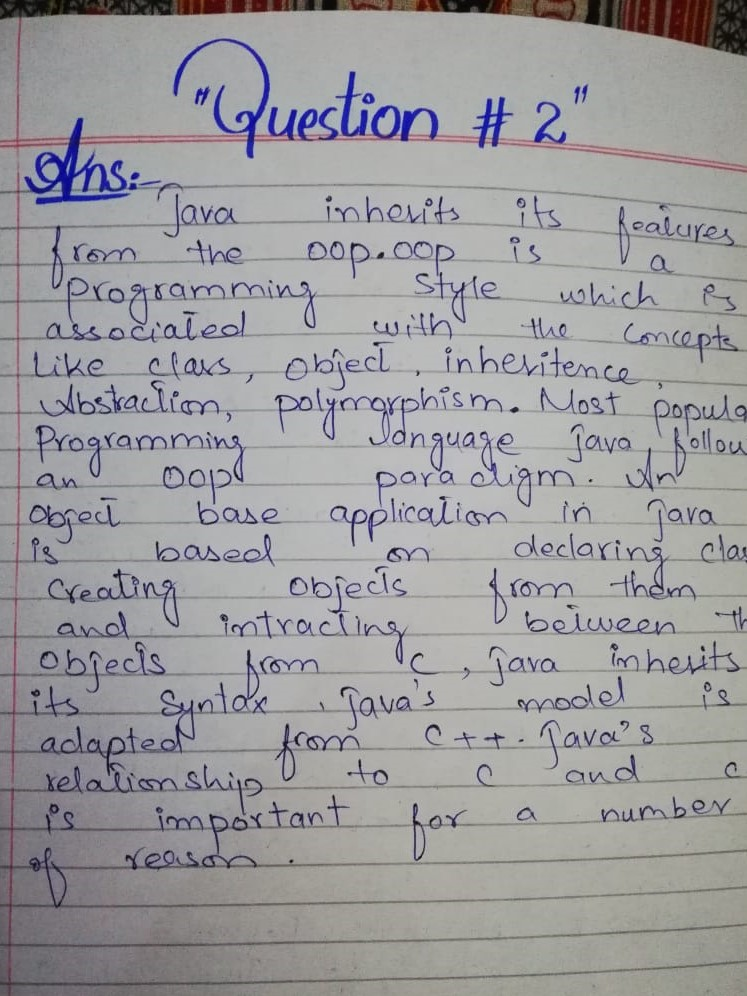 "Question # 2"
Ans:-
Java inherits its features
from the OOP.OOP is a
programming style which is
associated with the concepts
like class, object, inheritence,
Abstraction, polymorphism. Most popula
Programming language java, follow
an OOP paradigm. An
object base application in java
is based on declaring clas
creating objects from them
and intracting between th
objects from C, java inherits
its syntax, Java's model is
adapted from C++. Java's
relationship to C and C
is important for a number
of reason.